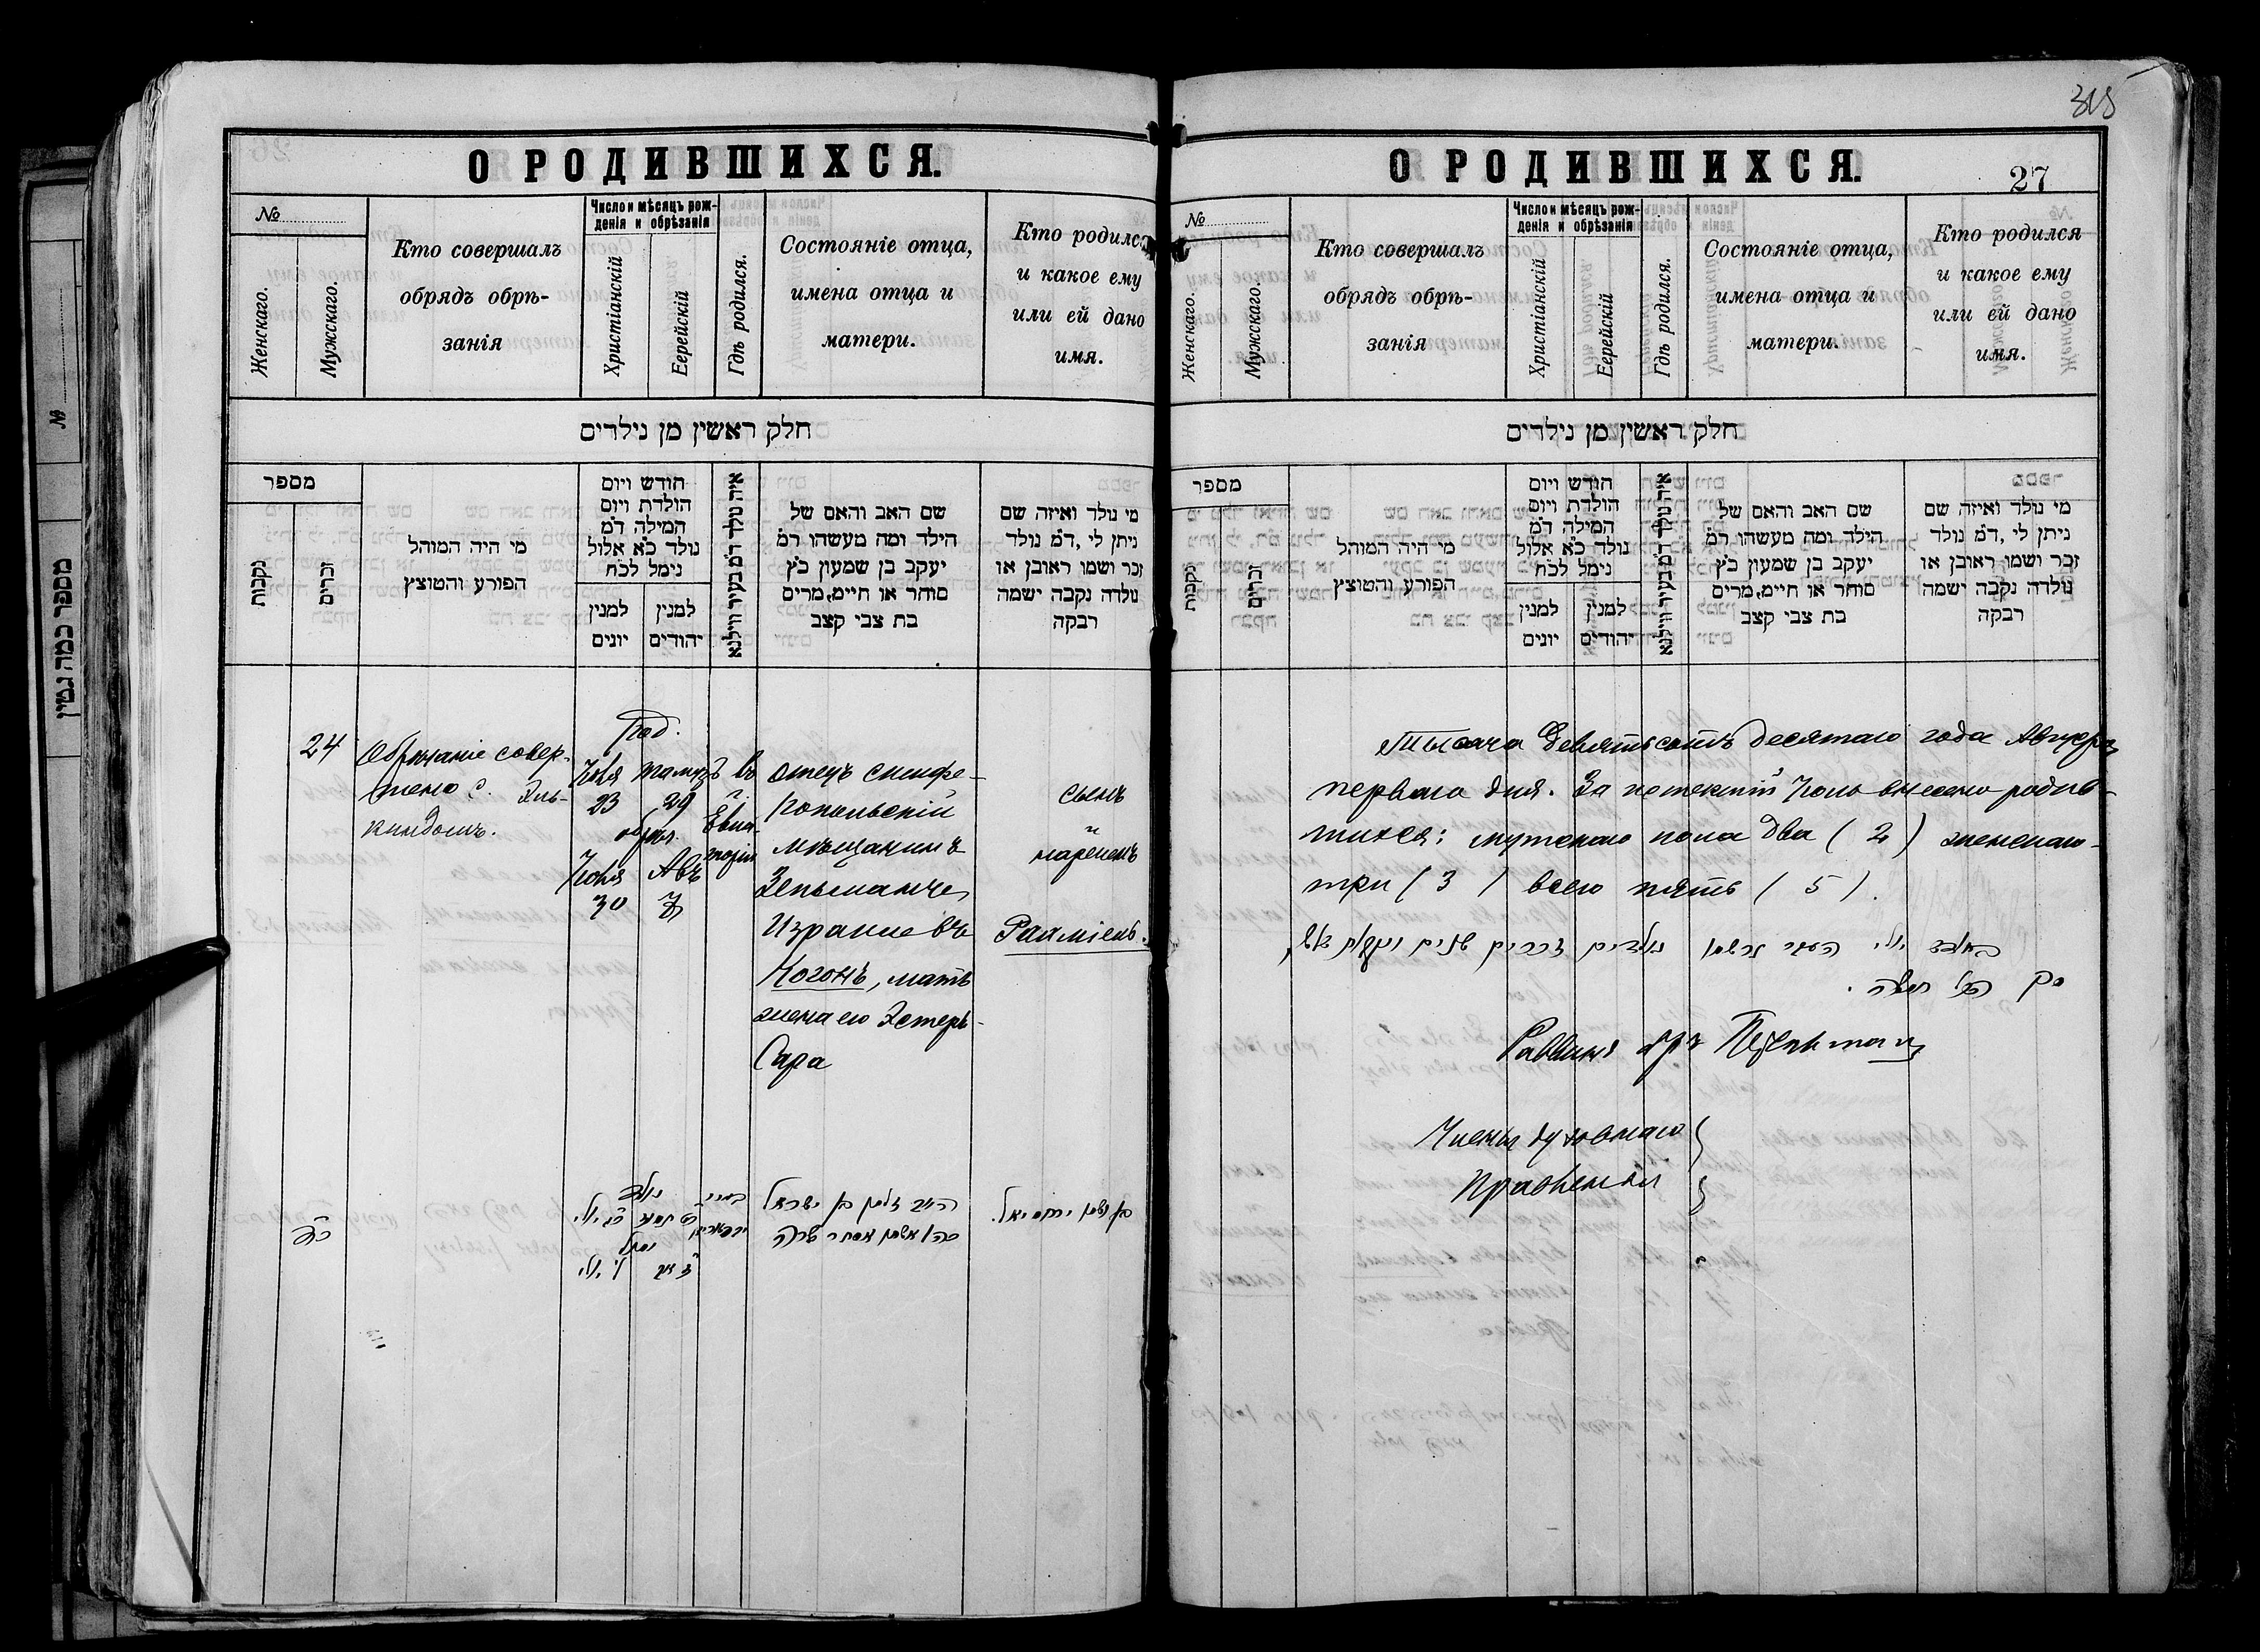 О РОДИВШИХСЯ.
№
Женскаго.
Мужскаго.
Кто совершалъ
обрядъ обрѣ-
занія
Число и мѣсяцъ рож-
денія и обрѣзанія
Христіанскій
Еерейскій
Гдѣ родился.
Состояніе отца,
имена отца и
матери.
Кто родился
и какое ему
или ей дано
имя.
חלק ראשין מן נילדים
מספר
נקבות
זכרים
מי היה המוהל
הפורע והטוצץ
חודש ויום
הולדת ויום
המילה דמ
נולד כא אלול
נימל לכח
למנין
יונים
למנין
יהודים
איה נולד דמ בעיר ווילנא
שם האב והאם של
הילד ומה מעשהו דמ
יעקב בן שמעון כץ
סוחר או חיים, מרים
בת צבי קצב
מי נולד ואיזה שם
ניתן לי, דמ נולד
זכר ושמו ראובן או
נולדה נקבה ישמה
רבקה
24
Обрѣзаніе совер-
шено
киндомъ.
Род.
Іюля Тамузъ
23 29
обрѣз.
Іюля Авъ
30 7
въ
г.
Евпа-
торіи
Отецъ симфе-
ропольскій
мѣщанинъ
Зельманъ
Израилевъ
Когонъ, мать
жена его Эстеръ-
Сара
сынъ
и
нареченъ
Рахміель.
כד
נולד
כט תמוז כג יולי
נימול
ז אב ל יולי
זלמן בן ישראל
כהן אשתו אסתר שרה
בן ושמו ירחמיאל.
О РОДИВШИХСЯ.
315
27
№
Женскаго.
Мужскаго.
Кто совершалъ
обрядъ обрѣ-
занія
Число и мѣсяцъ рож-
денія и обрѣзанія
Христіанскій
Еерейскій
Гдѣ родился.
Состояніе отца,
имена отца и
матери.
Кто родился
и какое ему
или ей дано
имя.
חלק ראשין מן נילדים
מספר
נקבות
זכרים
מי היה המוהל
הפורע והטוצץ
חודש ויום
הולדת ויום
המילה דמ
נולד כא אלול
נימל לכח
למנין
יונים
למנין
יהודים
איה נולד דמ בעיר ווילנא
שם האב והאם של
הילד ומה מעשהו דמ
יעקב בן שמעון כץ
סוחר או חיים, מרים
בת צבי קצב
מי נולד ואיזה שם
ניתן לי, דמ נולד
זכר ושמו ראובן או
נולדה נקבה ישמה
רבקה
Тысяча девятьсотъ десятаго года Августа
перваго дня. За истекшій Іюль внесено родив-
шихся: мужскаго пола два (2) женскаго
три (3) всего пять (5).
בחודש יולי העבר נרשמו נולדים זכרים שנים ונקבות שלש
סך הכל חמשה.
Раввинъ
Члены духовнаго
Правленія